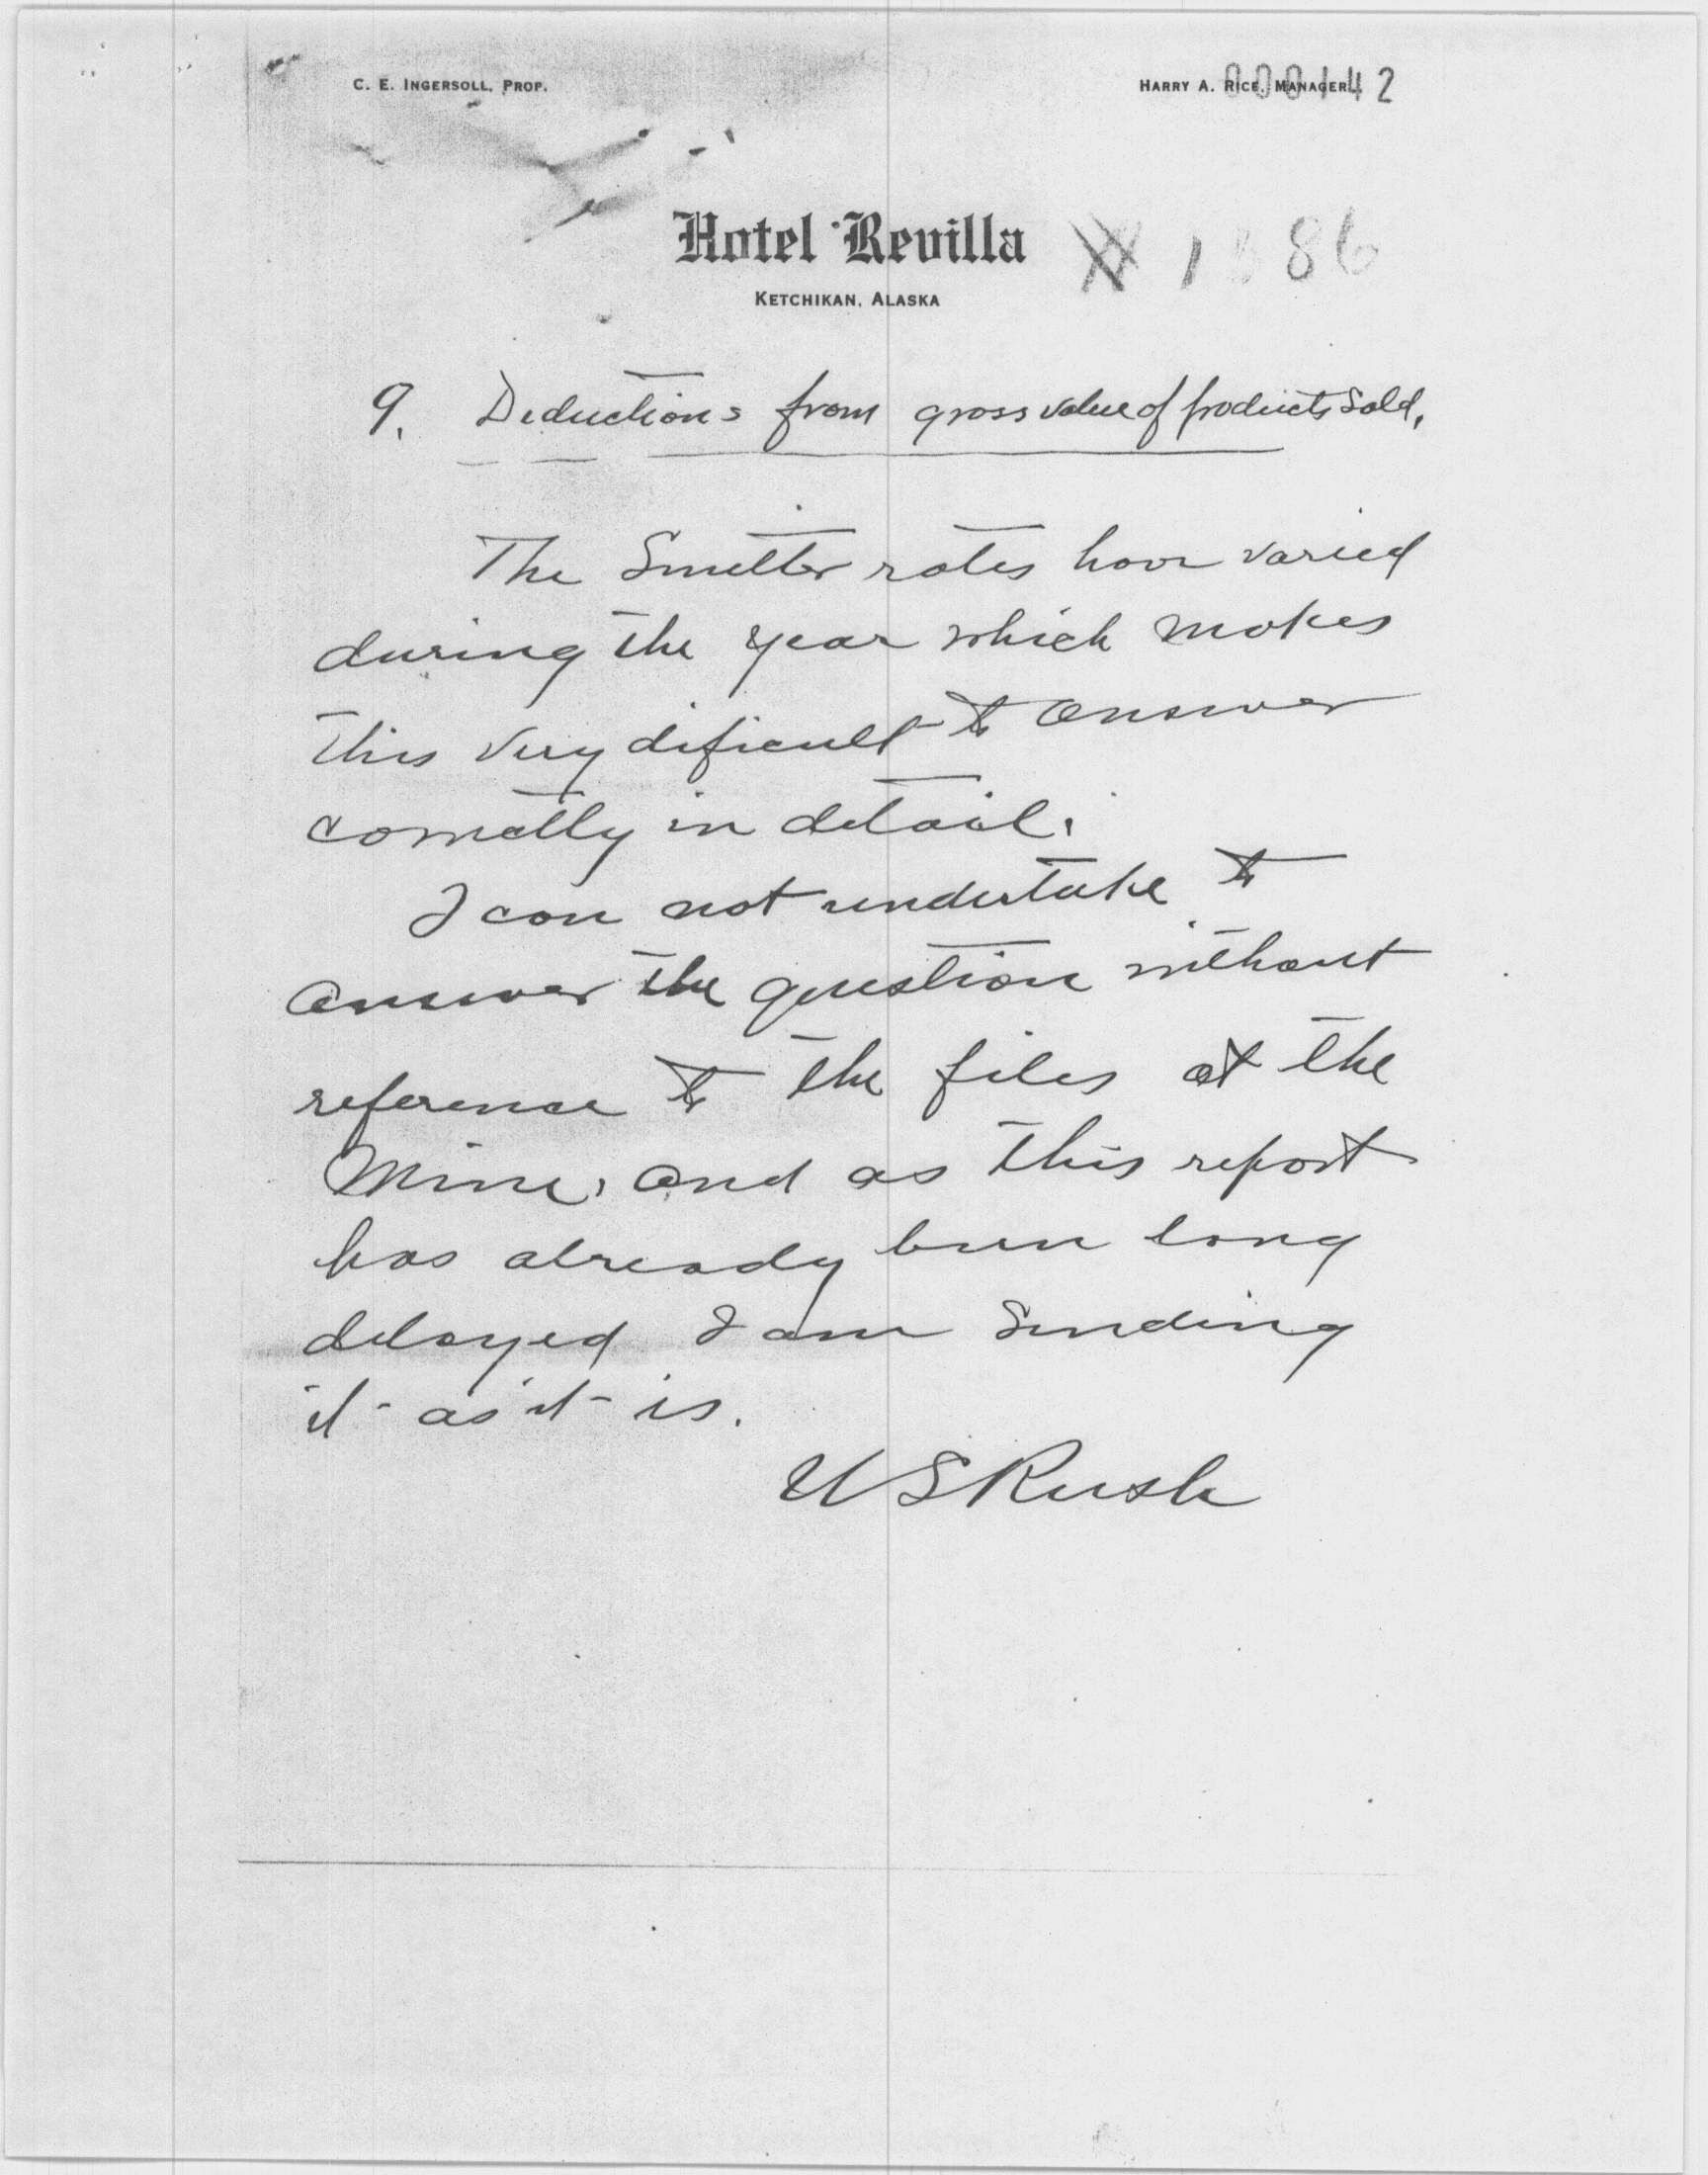 C. E. INGERSOLL, PROP.
HARRY A. RICE, MANAGER
000142
Hotel Revilla
KETCHIKAN, ALASKA
1386
9. Deductions from gross value of products sold.
The Smelter rates have varied
during the year which makes
this very dificult to answer
correctly in detail.
I can not undertake to
answer the question without
reference to the files at the
Mine, and as this report
has already been long
delayed I am sending
it as it is.
U S Rush